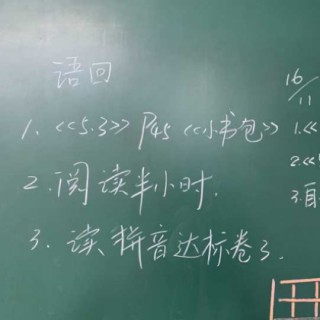 语回
1. <<5.3>> P45 <<小书包>>
2. 阅读半小时.
3. 读拼音达标卷3.
16/11
1.<<
2.<<
3.